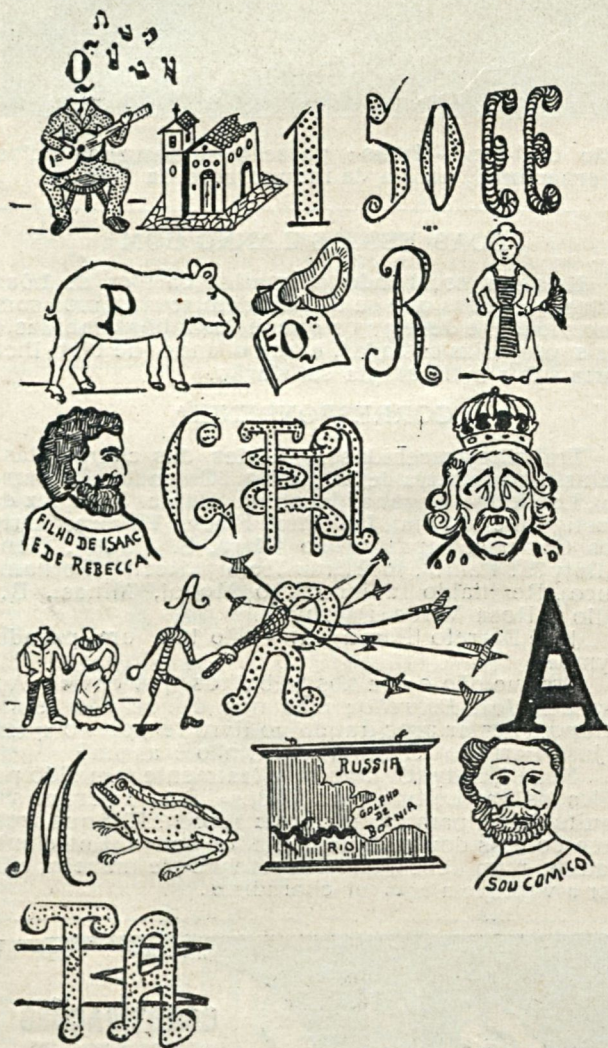 Õ
150 EE
P É Õ R
FILHO DE ISAAC
E DE REBECCA
C TA
A R A
M
RUSSIA
GOLPHO
DE
BOTNIA
RIO
SOU COMICO
TA